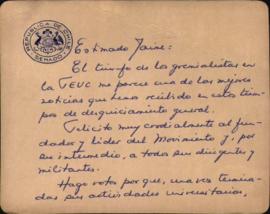 REPUBLICA DE CHILE
SENADO
Estimado Jaime:
El triunfo de los gremialistas en
la FEUC me parece una de las mejores
noticias que hemos recibido en estos tiem-
pos de desquiciamiento general.
Felicito muy cordialmente al fun-
dador y líder del Movimiento y, por
su intermedio, a todos sus dirigentes y
militantes.
Hago votos por que, una vez termina-
das sus actividades universitarias,